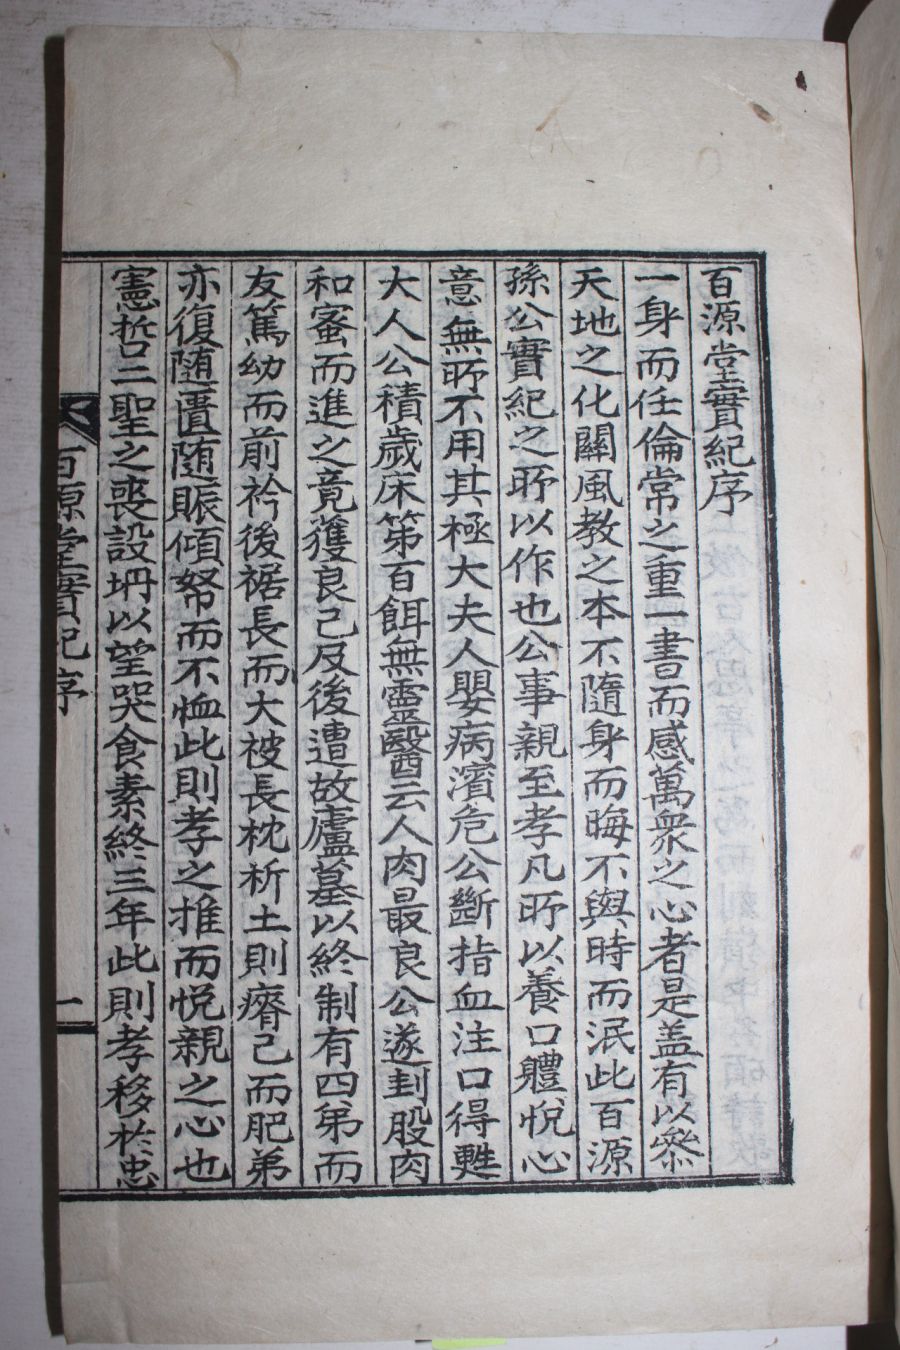 百源堂實紀序
一身而任倫常之重一書而感萬衆之心者是盖有以參
天地之化關風教之本不隨身而晦不與時而泯此百源
孫公實紀之所以作也公事親至孝凡所以養口軆悅心
意無所不用其極大夫人嬰病濱危公斷指血注口得甦
大人公積歲床第百餌無靈醫云人肉最良公遂刲股肉
和蜜而進之竟獲良已及後遭故廬墓以終制有四弟而
友篤幼而前衿後裾長而大被長枕析土則瘠己而肥弟
亦復随匱随賑傾帑而不恤此則孝之推而悅親之心也
憲哲二聖之喪設坍以望哭食素終三年此則孝移於忠
百源堂實紀序
一